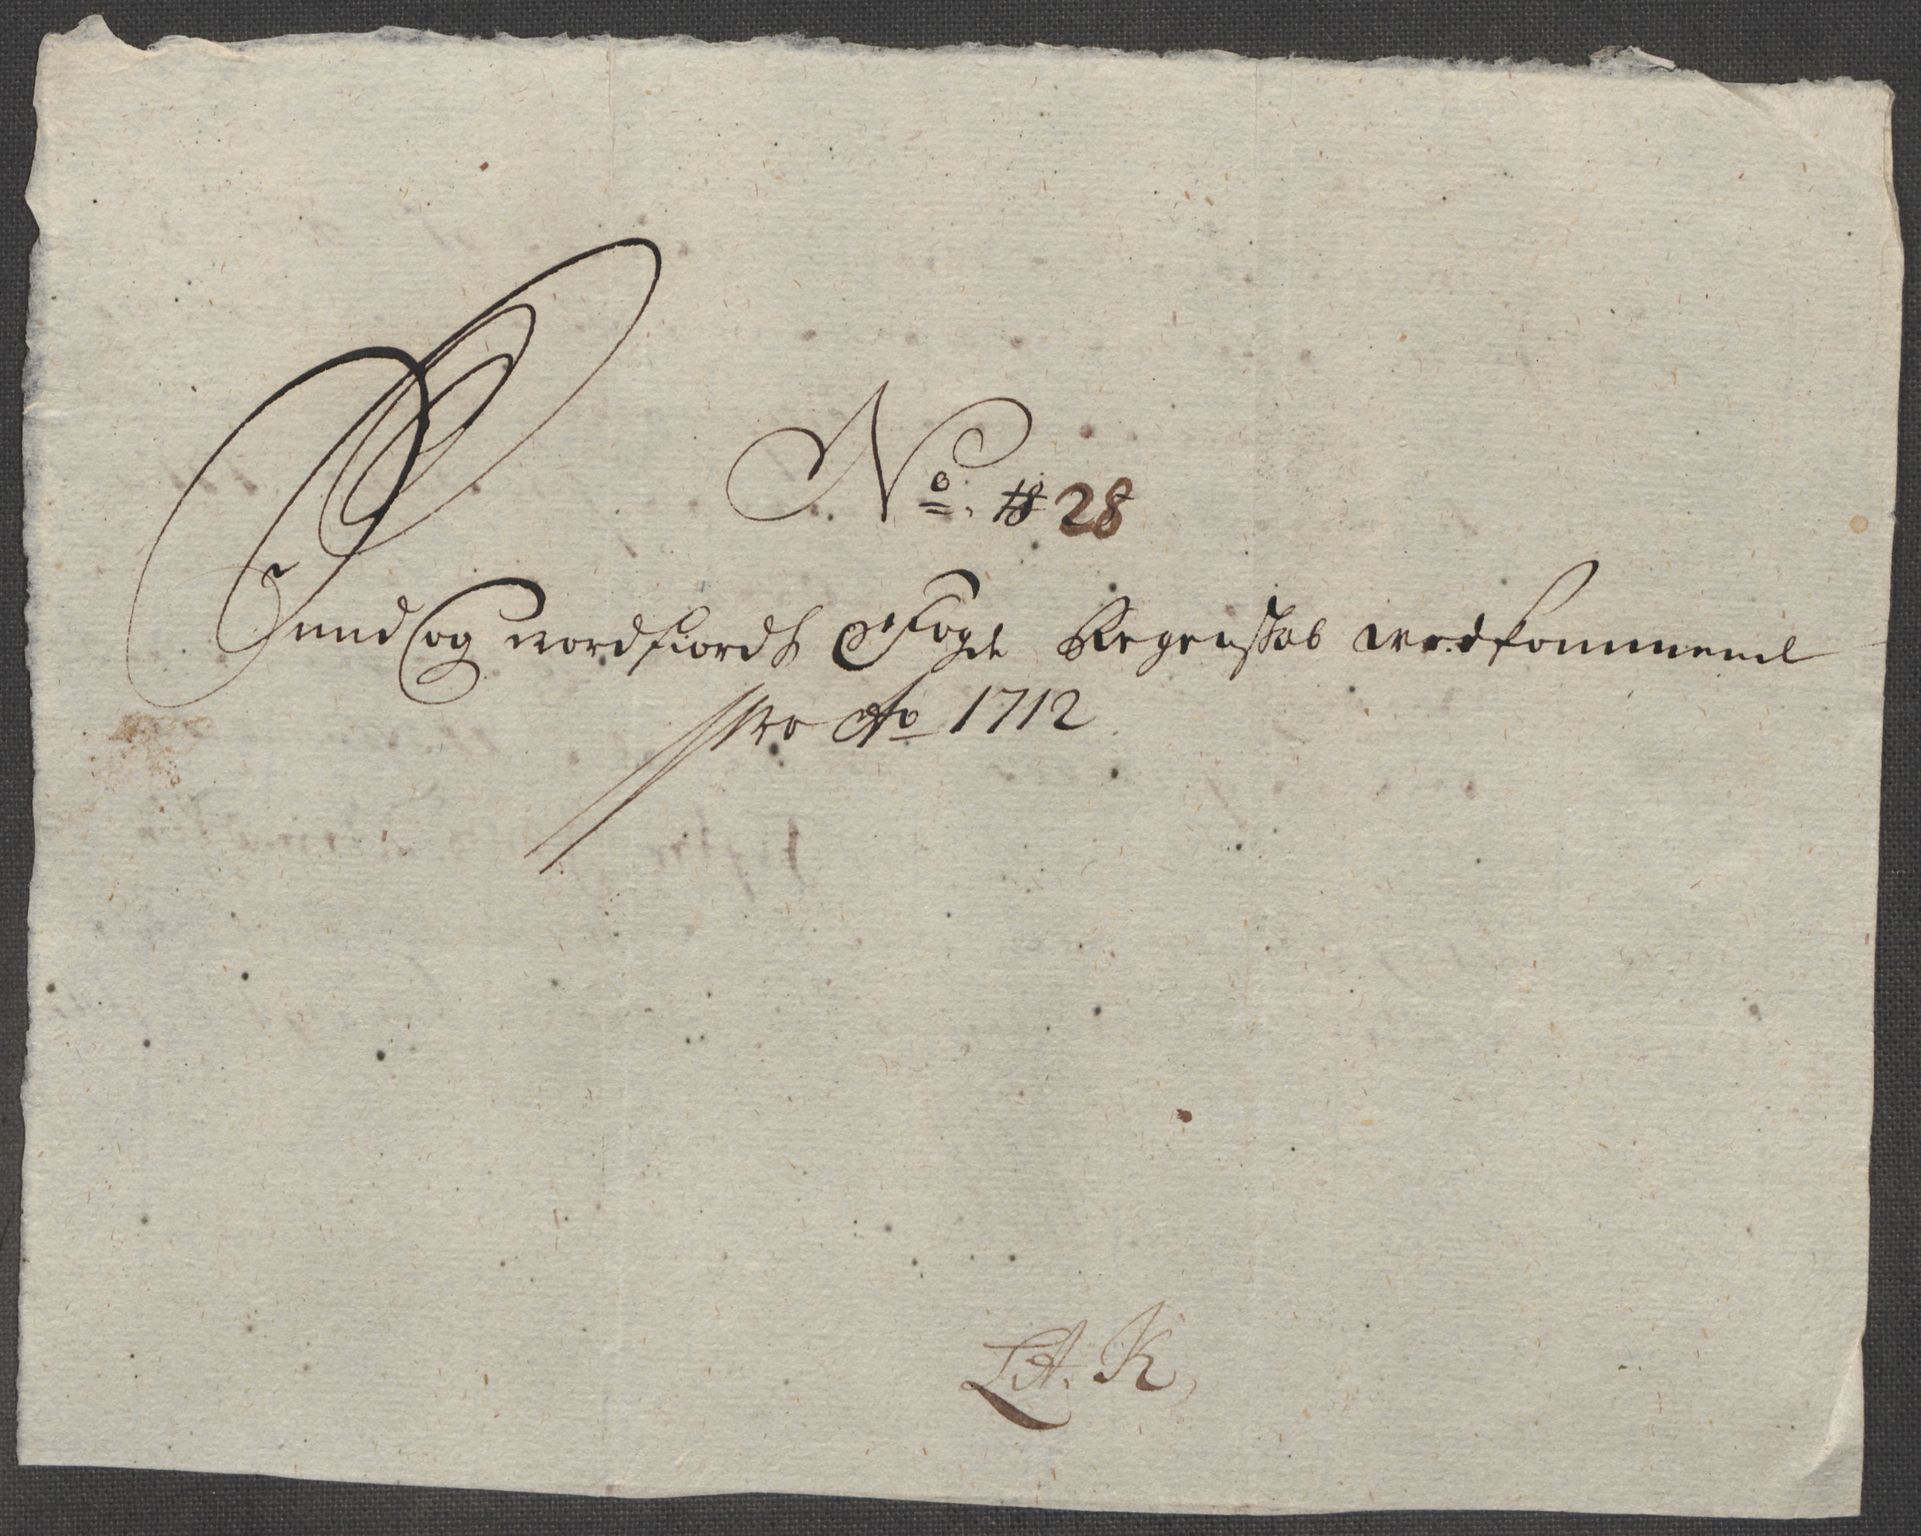 No. 18 28
Sund og nordfiords Fogde Regenskab vedkommende
pro Ao 1712
Lit. K,